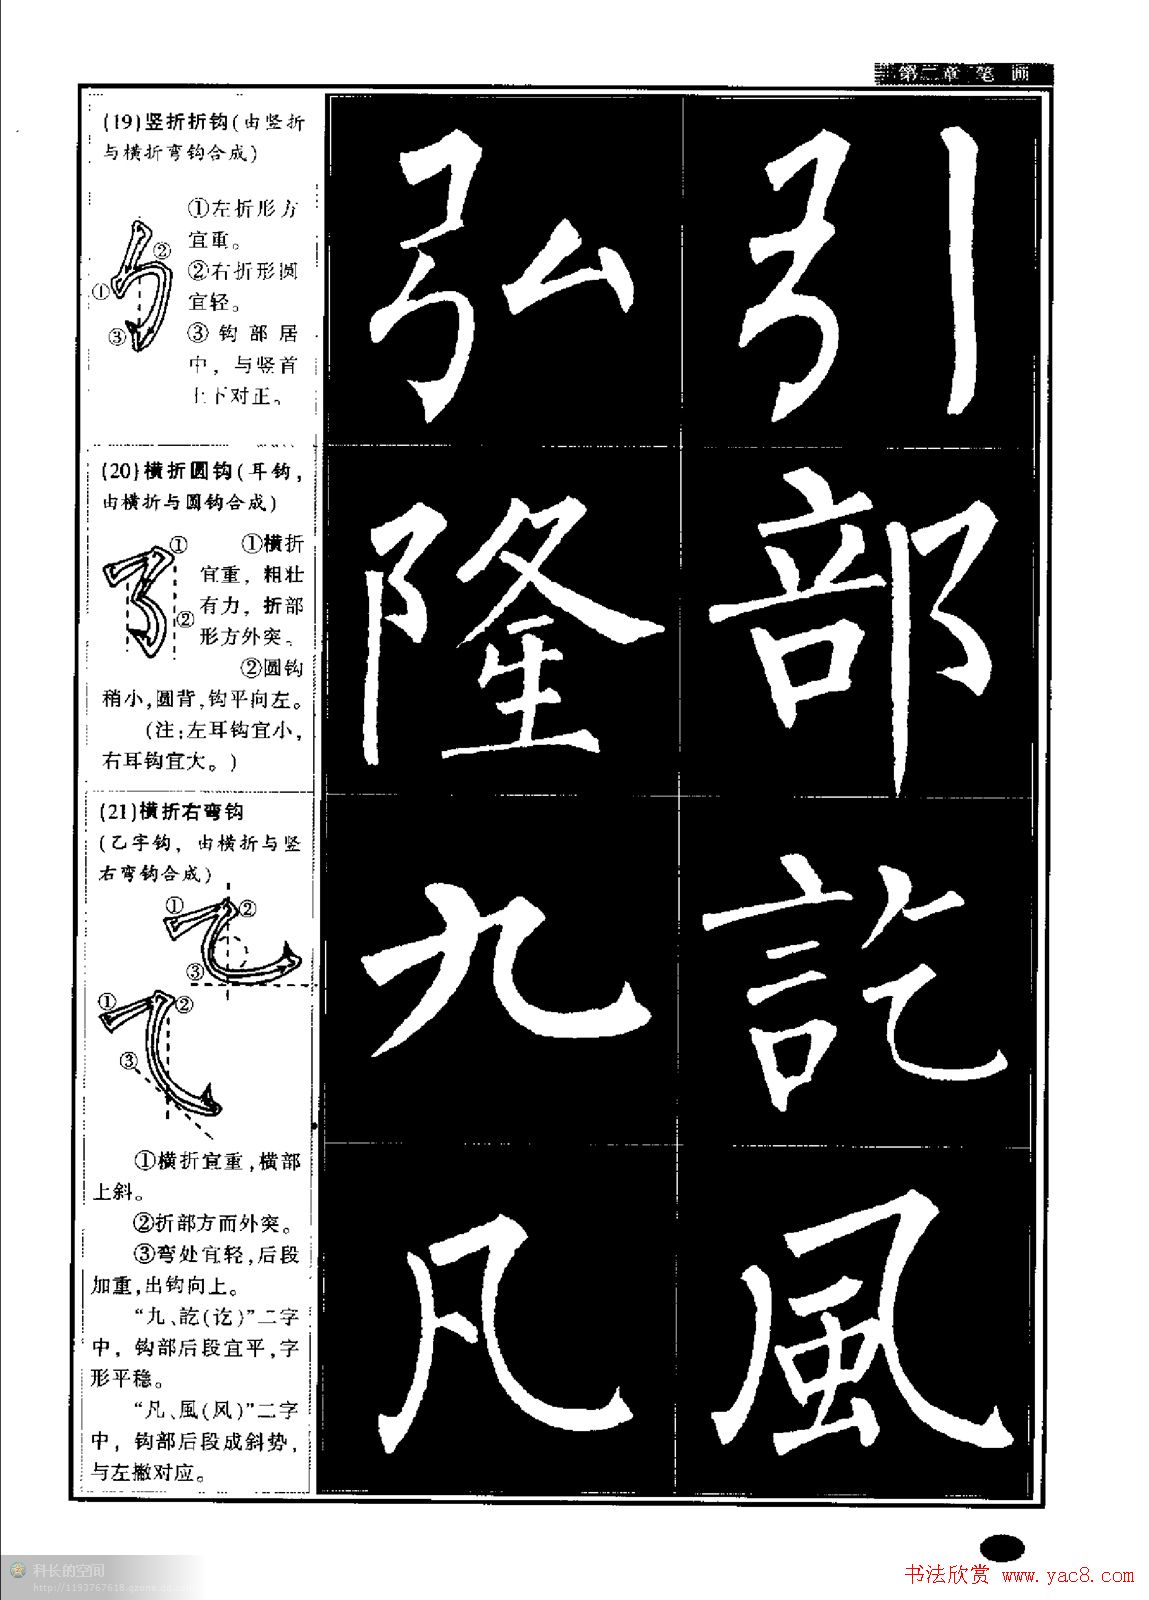 第二章 笔画
(19)竖折折钩(由竖折
与横折弯钩合成)
①左折形方
宜重。
②右折形圆
宜轻。
③钩部居
中，与竖首
上下对正。
②
①
③
(20)横折圆钩(耳钩，
由横折与圆钩合成)
①横折
宜重，粗壮
有力，折部
形方外突、
②圆钩
稍小,圆背,钩平向左。
(注:左耳钩宜小，
右耳钩宜大。)
①
②
(21)横折右弯钩
(乙字钩，由横折与竖
右弯钩合成)
① ②
③
① ②
③
①横折宜重,横部
上斜。
②折部方而外突。
③弯处宜轻,后段
加重,出钩向上。
“九、訖(讫)”二字
中，钩部后段宜平,字
形平稳。
“凡、風(风)”二字
中，钩部后段成斜势，
与左撇对应。
弘 引
隆 部
九 訖
凡 風
科长的空间
http://1193767618.qzone.qq.com
书法欣赏 www.yac8.com